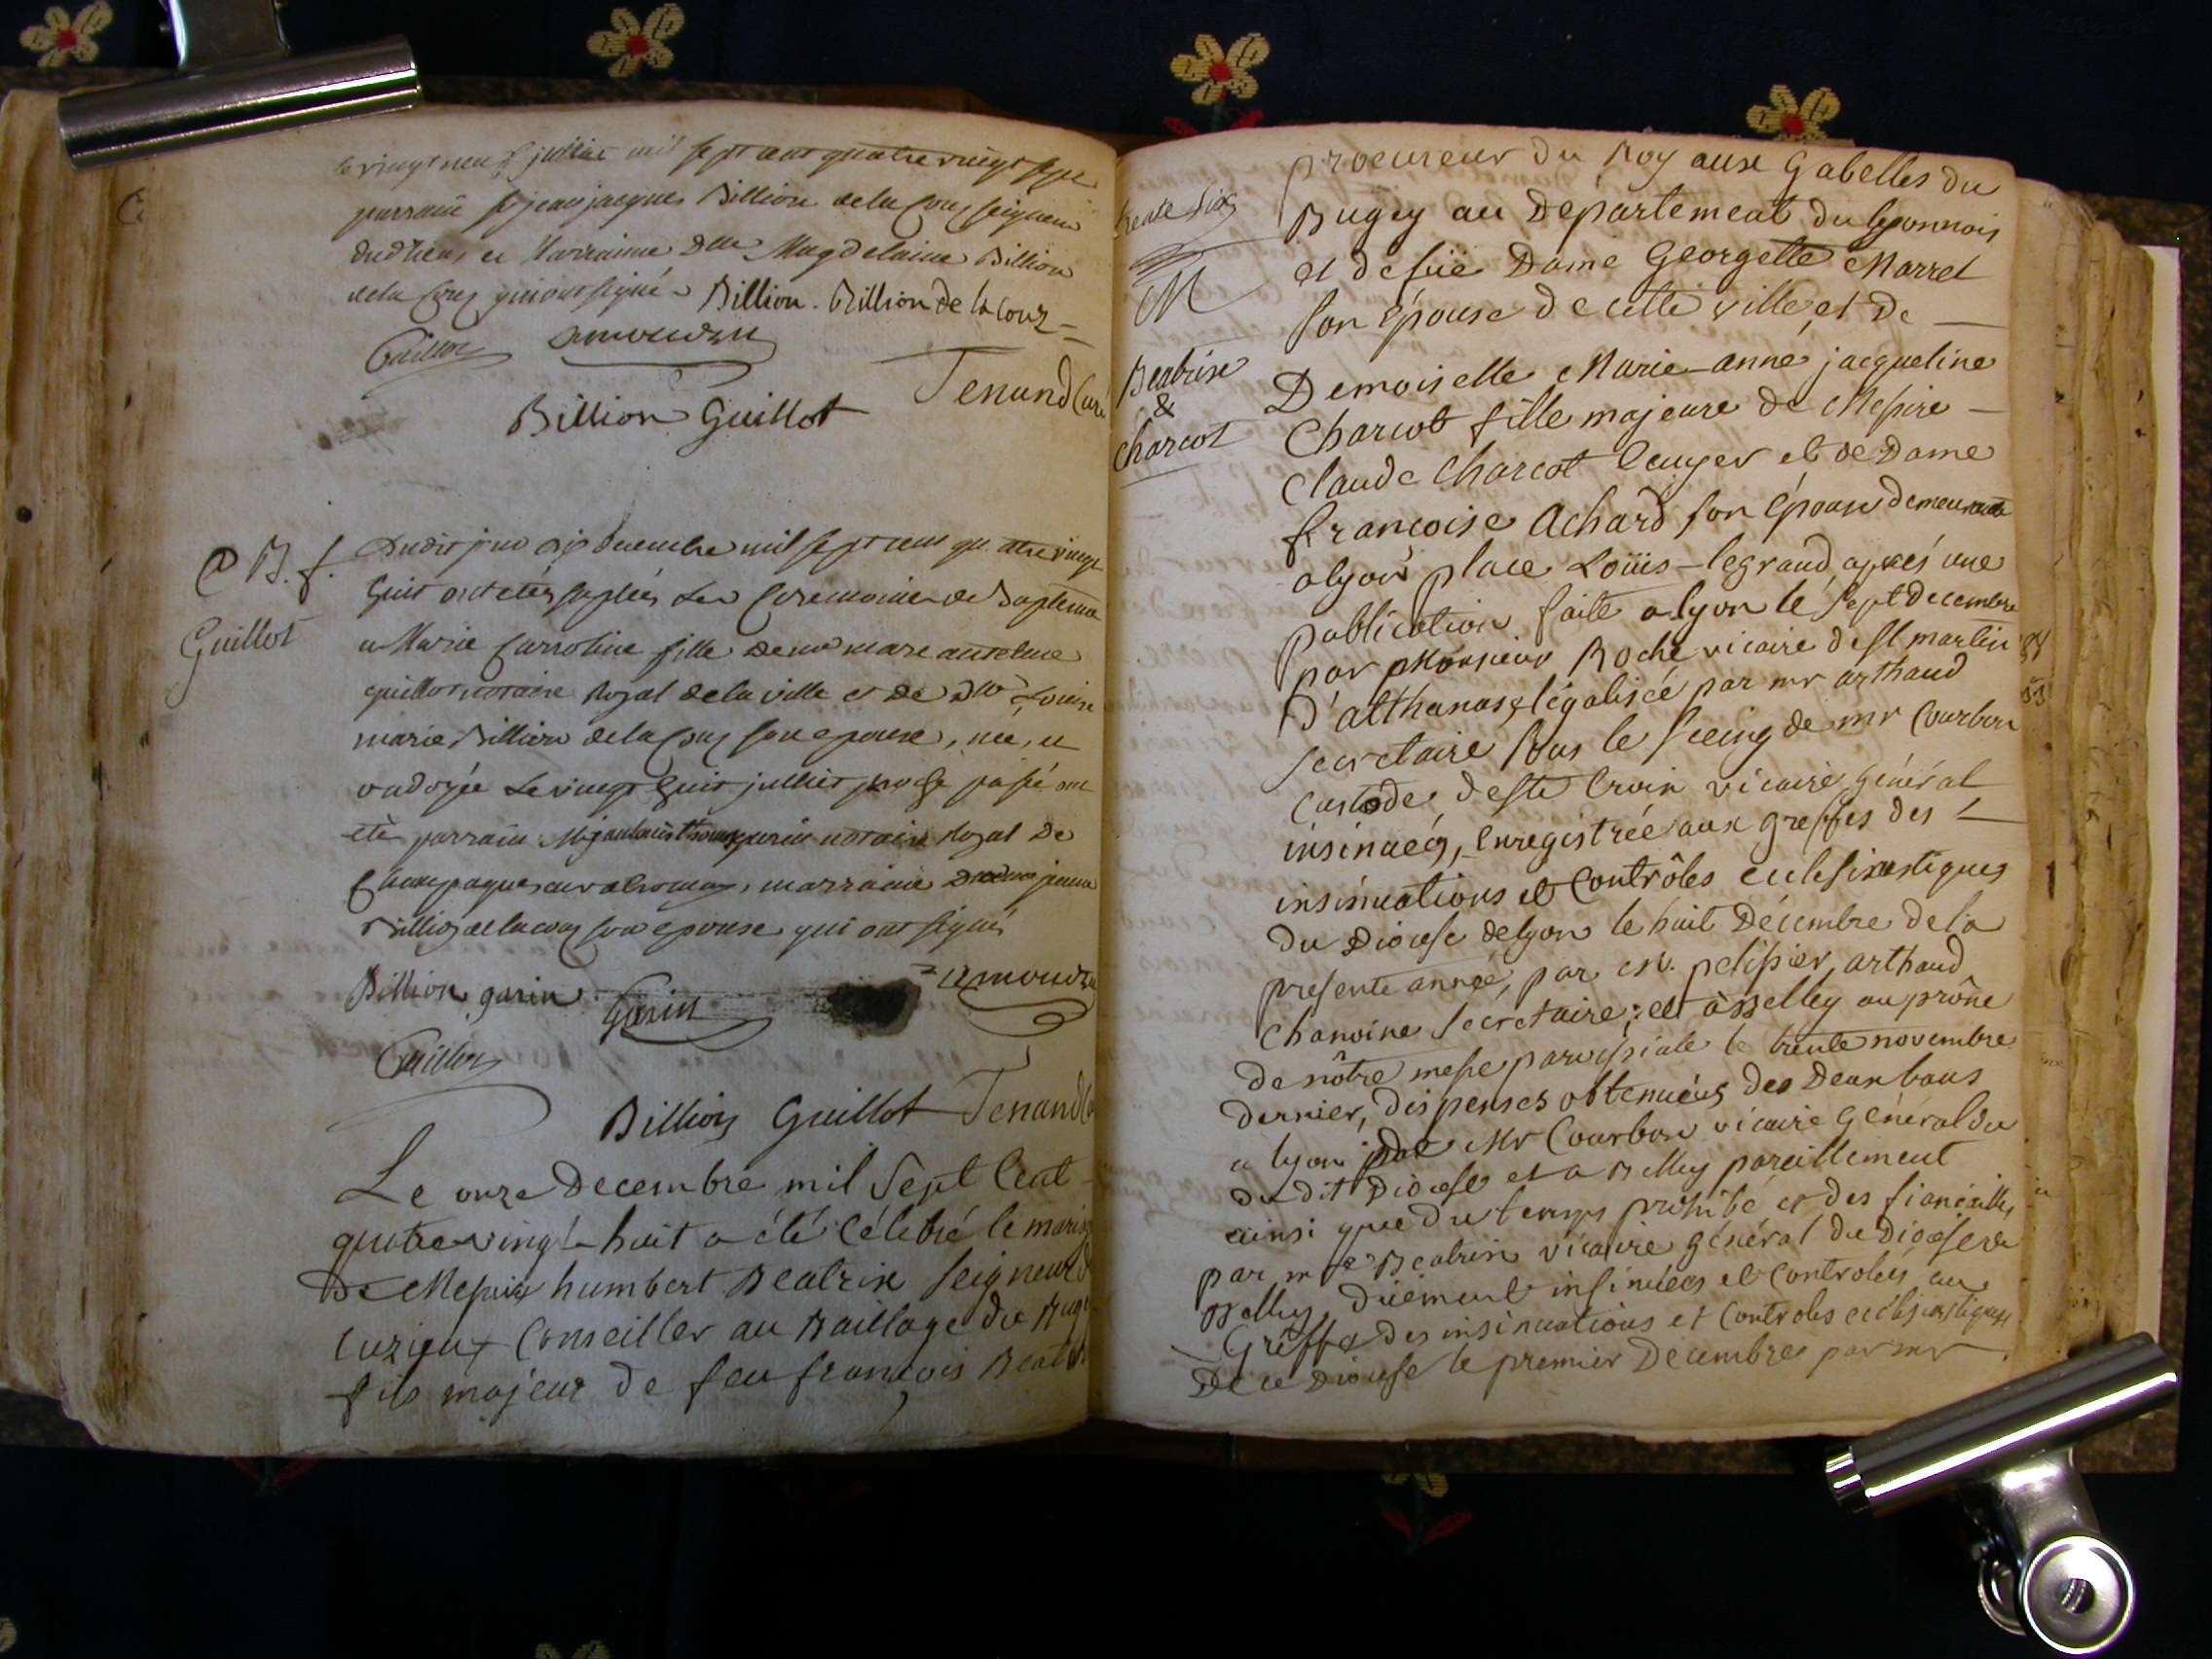 le vingt neuf juillet mil sept cent quatre vingt sept
parrain sr jean jacques Billion de la Cour seigneur
dud lieu, et Marraine Dlle Magdelaine Billion
de la Cour qui ont signé. Billion. Billion de la Cour
Guillot
Billion Guillot Tenand Curé
B. f.
Guillot
Dudit jour decembre mil sept cent quatre vingt
huit ont étés supléés les Ceremonies de Bapteme
a Marie Carroline fille de me marc antelme
guillot notaire Royal de la ville et de Dlle Louise
marie Billion de la Cour son epouse, née, et
ondoyée le vingt huit juillet proche passé ont
été parrain garin notaire Royal de
Champagne marraine jeanne
Billion de la cour son epouse qui ont signé
Billion garin Garin
Guillot
Billion Guillot Tenand
Le onze Decembre mil Sept Cent
quatre vingt huit a été Célébré le mariage
De Messire humbert Béatrix Seigneur de
Cuzieu Conseiller au Baillage du Bugey
fils majeur de feu françois Beatrix
trente six
M
Beatrix
&
Charcot
procureur du Roy aux Gabelles du
Bugey au Département du lyonnois
et de fûë Dame Georgette Marret
son Épouse de cette ville, et De
Demoiselle Marie-anne jacqueline
Charcot fille majeure de Messire
Claude Charcot Ecuyer et de Dame
françoise Achard son Épouse demeurante
a lyon place Loüis-legrand, aprés une
publication faite a lyon le Sept Decembre
par Monsieur Roche vicaire de St martin
D'althanas, légalisée par mr arthaud
secretaire sous le seeing de mr Courbon
Custode de Ste Croix vicaire général
insinuéé, Enregistrée aux greffes des
insinuations et Contrôles eclesiastiques
du Diocese de lyon le huit Décembre de la
presente année, par M. pelissier, arthaud
Chanoine Secretaire; et à Belley au prône
de nôtre messe paroissiale le trente novembre
dernier, dispenses obtenuëes des Deux bans
a lyon par Mr Courbon vicaire Général du
du dit Diocese et a Belley pareillement
ainsi que du temps prohibé et des fiançailles
par mre Beatrix vicaire général du Diocese de
Belley, düement insinuées et Controlées au
Greffe des insinuations et Controles eclésiastiques
De ce Diocese le premier Decembre par mr